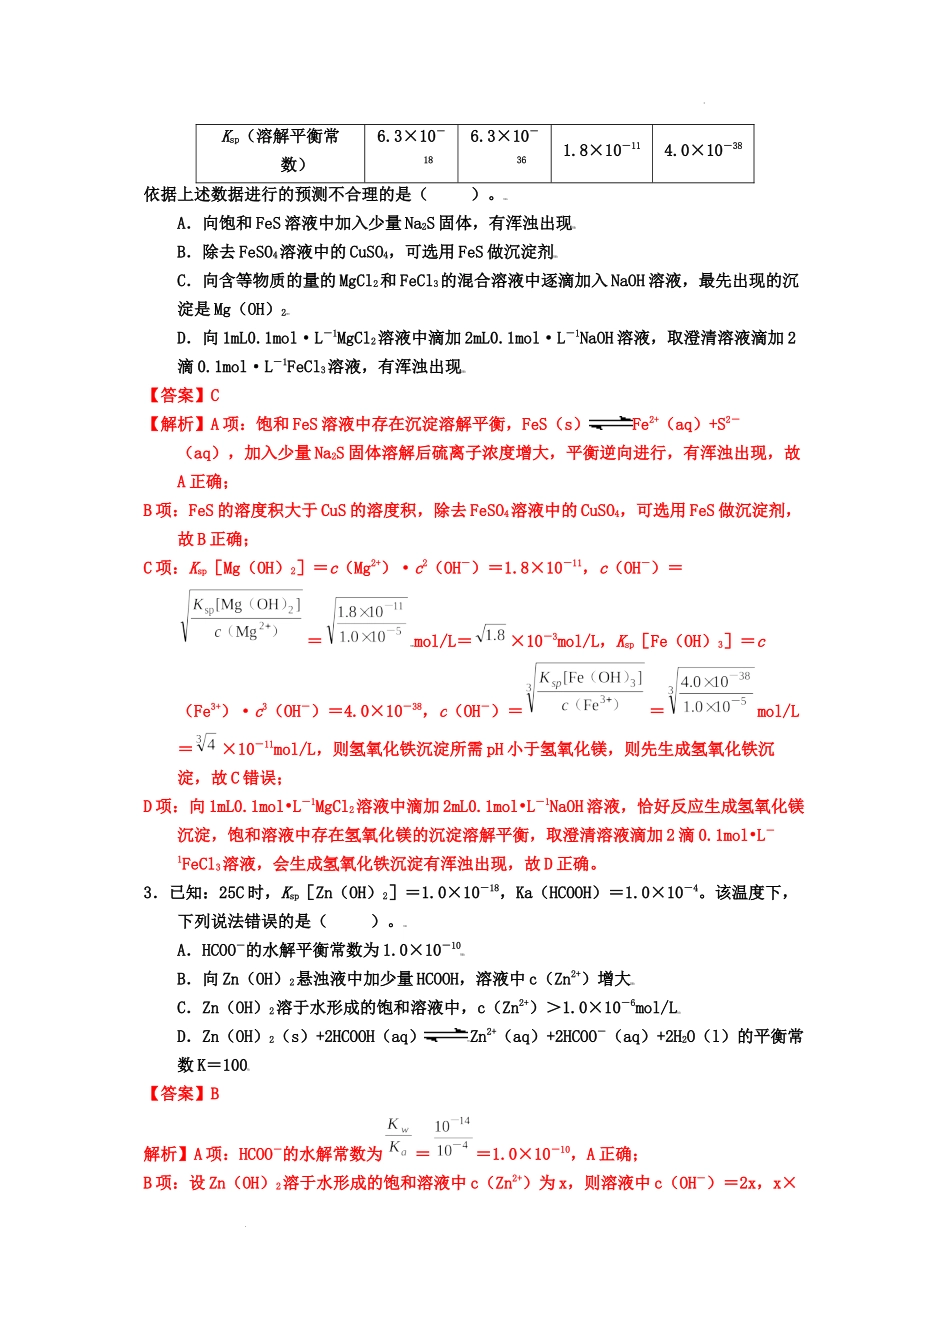 Ksp（溶解平衡常数） 6.3×10－18 6.3×10－36 1.8×10－11 4.0×10－38
依据上述数据进行的预测不合理的是（　　）。
A．向饱和 FeS 溶液中加入少量 Na2S 固体，有浑浊出现
B．除去 FeSO4 溶液中的 CuSO4，可选用 FeS 做沉淀剂
C．向含等物质的量的 MgCl2 和 FeCl3 的混合溶液中逐滴加入 NaOH 溶液，最先出现的沉
淀是 Mg（OH）2
D．向 1mL0.1mol·L－1MgCl2 溶液中滴加 2mL0.1mol·L－1NaOH 溶液，取澄清溶液滴加 2
滴 0.1mol·L－1FeCl3 溶液，有浑浊出现
【答案】C
【解析】A 项：饱和 FeS 溶液中存在沉淀溶解平衡，FeS（s）⇌Fe2+（aq）+S2－
（aq），加入少量 Na2S 固体溶解后硫离子浓度增大，平衡逆向进行，有浑浊出现，故
A 正确；
B 项：FeS 的溶度积大于 CuS 的溶度积，除去 FeSO4 溶液中的 CuSO4，可选用 FeS 做沉淀剂，
故 B 正确；
C 项：Ksp［Mg（OH）2］＝c（Mg2+）·c2（OH－）＝1.8×10－11，c（OH－）＝
√(Ksp[Mg（OH）2]/c（Mg2+）)＝√(1.8×10－11/1.0×10－5)mol/L＝√1.8×10－3mol/L，Ksp［Fe（OH）3］＝c
（Fe3+）·c3（OH－）＝4.0×10－38，c（OH－）＝∛(Ksp[Fe（OH）3]/c（Fe3+）)＝∛(4.0×10－38/1.0×10－5)mol/L
＝∛4×10－11mol/L，则氢氧化铁沉淀所需 pH 小于氢氧化镁，则先生成氢氧化铁沉
淀，故 C 错误；
D 项：向 1mL0.1mol•L－1MgCl2 溶液中滴加 2mL0.1mol•L－1NaOH 溶液，恰好反应生成氢氧化镁
沉淀，饱和溶液中存在氢氧化镁的沉淀溶解平衡，取澄清溶液滴加 2 滴 0.1mol•L－
1FeCl3 溶液，会生成氢氧化铁沉淀有浑浊出现，故 D 正确。
3．已知：25C 时，Ksp［Zn（OH）2］＝1.0×10－18，Ka（HCOOH）＝1.0×10－4。该温度下，
下列说法错误的是（　　）。
A．HCOO－的水解平衡常数为 1.0×10－10
B．向 Zn（OH）2 悬浊液中加少量 HCOOH，溶液中 c（Zn2+）增大
C．Zn（OH）2 溶于水形成的饱和溶液中，c（Zn2+）＞1.0×10－6mol/L
D．Zn（OH）2（s）+2HCOOH（aq）⇌Zn2+（aq）+2HCOO－（aq）+2H2O（l）的平衡常
数 K＝100
【答案】B
解析】A 项：HCOO－的水解常数为 Kw/Ka＝10－14/10－4＝1.0×10－10，A 正确；
B 项：设 Zn（OH）2 溶于水形成的饱和溶液中 c（Zn2+）为 x，则溶液中 c（OH－）＝2x，x×